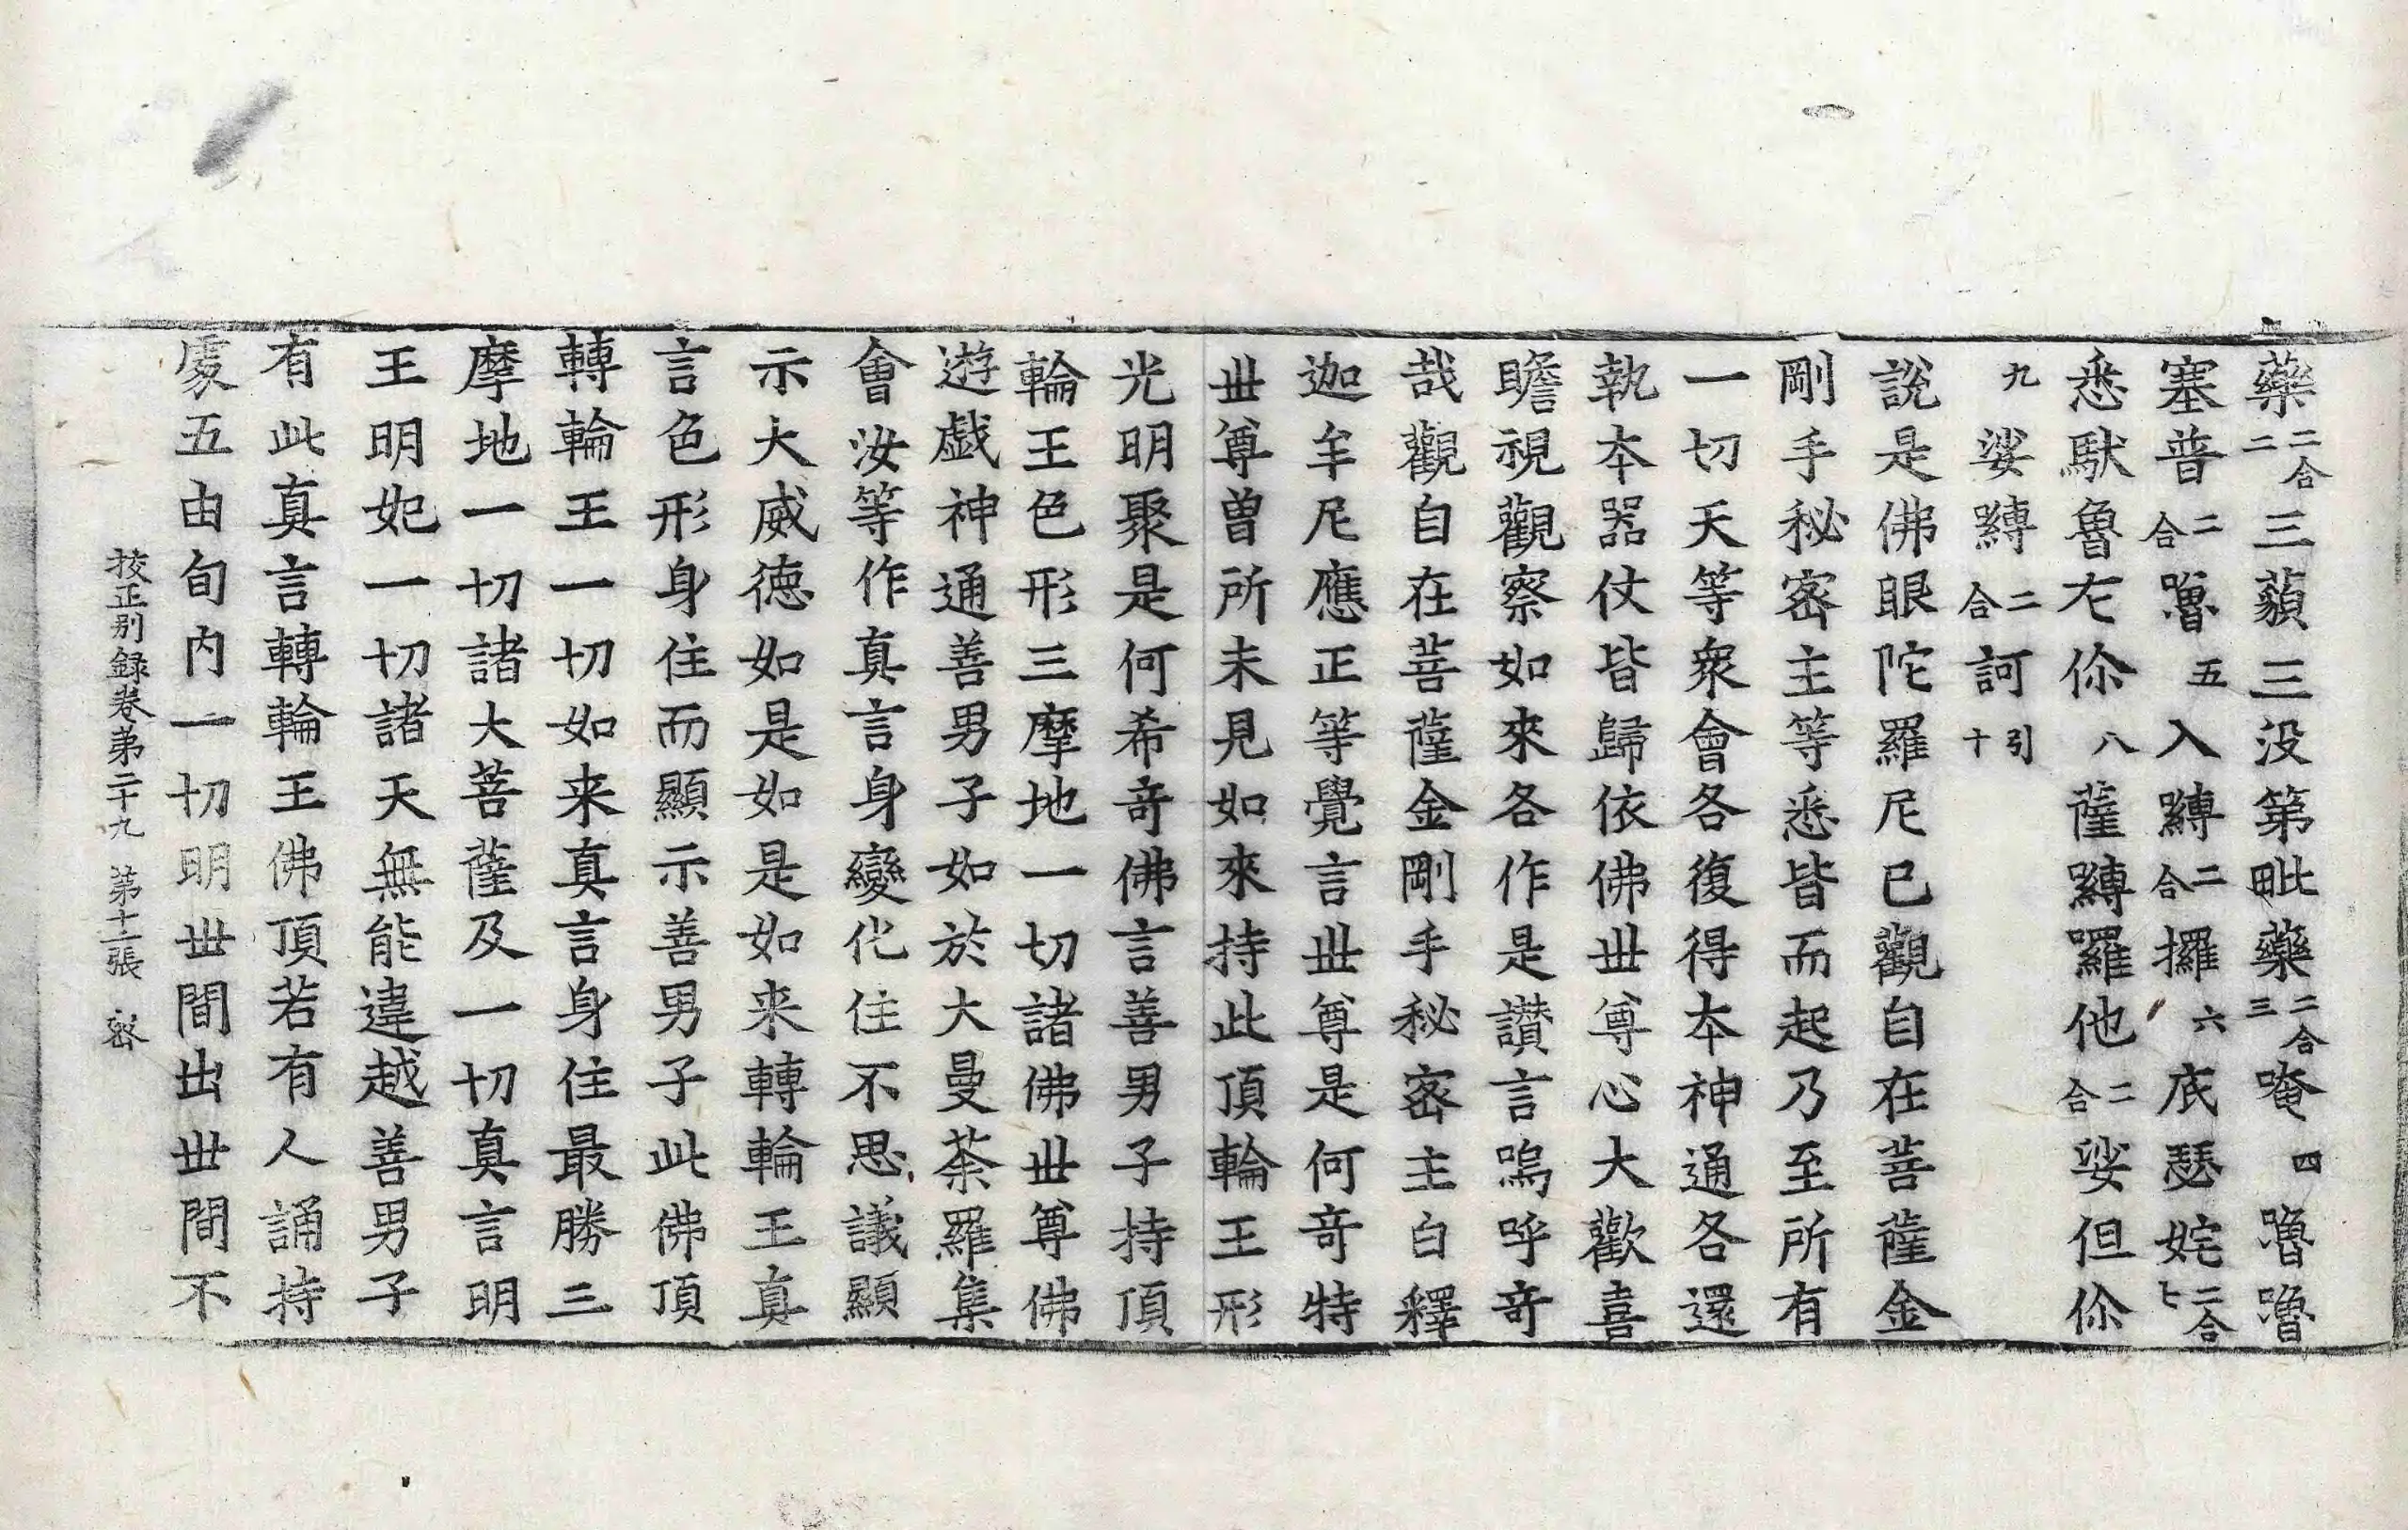 藥二合二三藐三没第毗藥二合三唵四嚕嚕
塞普二合嚕五入嚩二合攞六底瑟姹二合七
悉馱魯左伱八薩嚩囉他二合娑但伱
九娑嚩二合訶引十
說是佛眼陀羅尼已觀自在菩薩金
剛手秘密主等悉皆而起乃至所有
一切天等衆會各復得本神通各還
執本器仗皆歸依佛世尊心大歡喜
瞻視觀察如來各作是讃言嗚呼竒
哉觀自在菩薩金剛手秘密主白釋
迦牟尼應正等覺言世尊是何竒特
世尊曽所未見如來持此頂輪王形
光明聚是何希竒佛言善男子持頂
輪王色形三摩地一切諸佛世尊佛
遊戯神通善男子如於大曼荼羅集
會汝等作真言身變化住不思議顯
示大威德如是如是如来轉輪王真
言色形身住而顯示善男子此佛頂
轉輪王一切如来真言身住最勝三
摩地一切諸大菩薩及一切真言明
王明妃一切諸天無能違越善男子
有此真言轉輪王佛頂若有人誦持
處五由旬内一切明世間出世間不
挍正别録卷苐二十九 第十二張 密